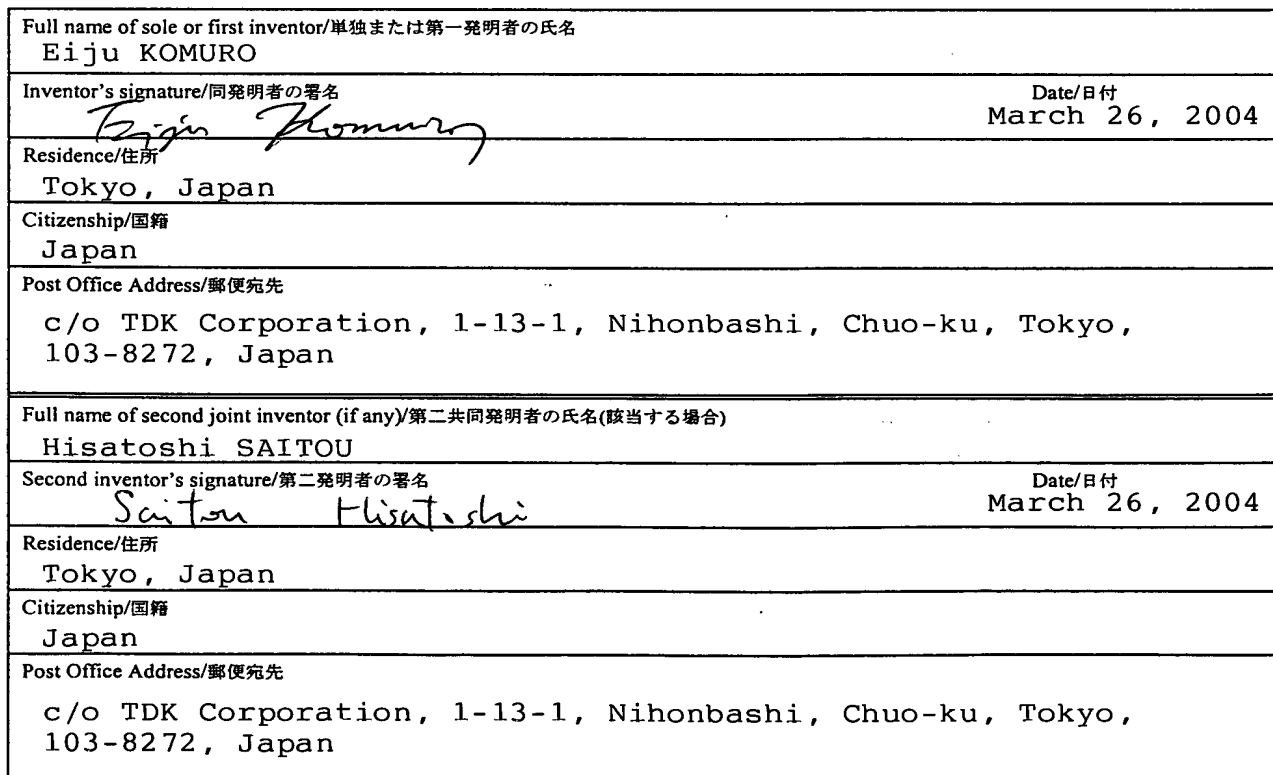 Full name of sole or first inventor/単独または第一発明者の氏名
Eiju KOMURO
Inventor's signature/同発明者の署名 Date/日付
Eiju Komuro March 26, 2004
Residence/住所
Tokyo, Japan
Citizenship/国籍
Japan
Post Office Address/郵便宛先
c/o TDK Corporation, 1-13-1, Nihonbashi, Chuo-ku, Tokyo,
103-8272, Japan
Full name of second joint inventor (if any)/第二共同発明者の氏名(該当する場合)
Hisatoshi SAITOU
Second inventor's signature/第二発明者の署名 Date/日付
Saitou Hisatoshi March 26, 2004
Residence/住所
Tokyo, Japan
Citizenship/国籍
Japan
Post Office Address/郵便宛先
c/o TDK Corporation, 1-13-1, Nihonbashi, Chuo-ku, Tokyo,
103-8272, Japan